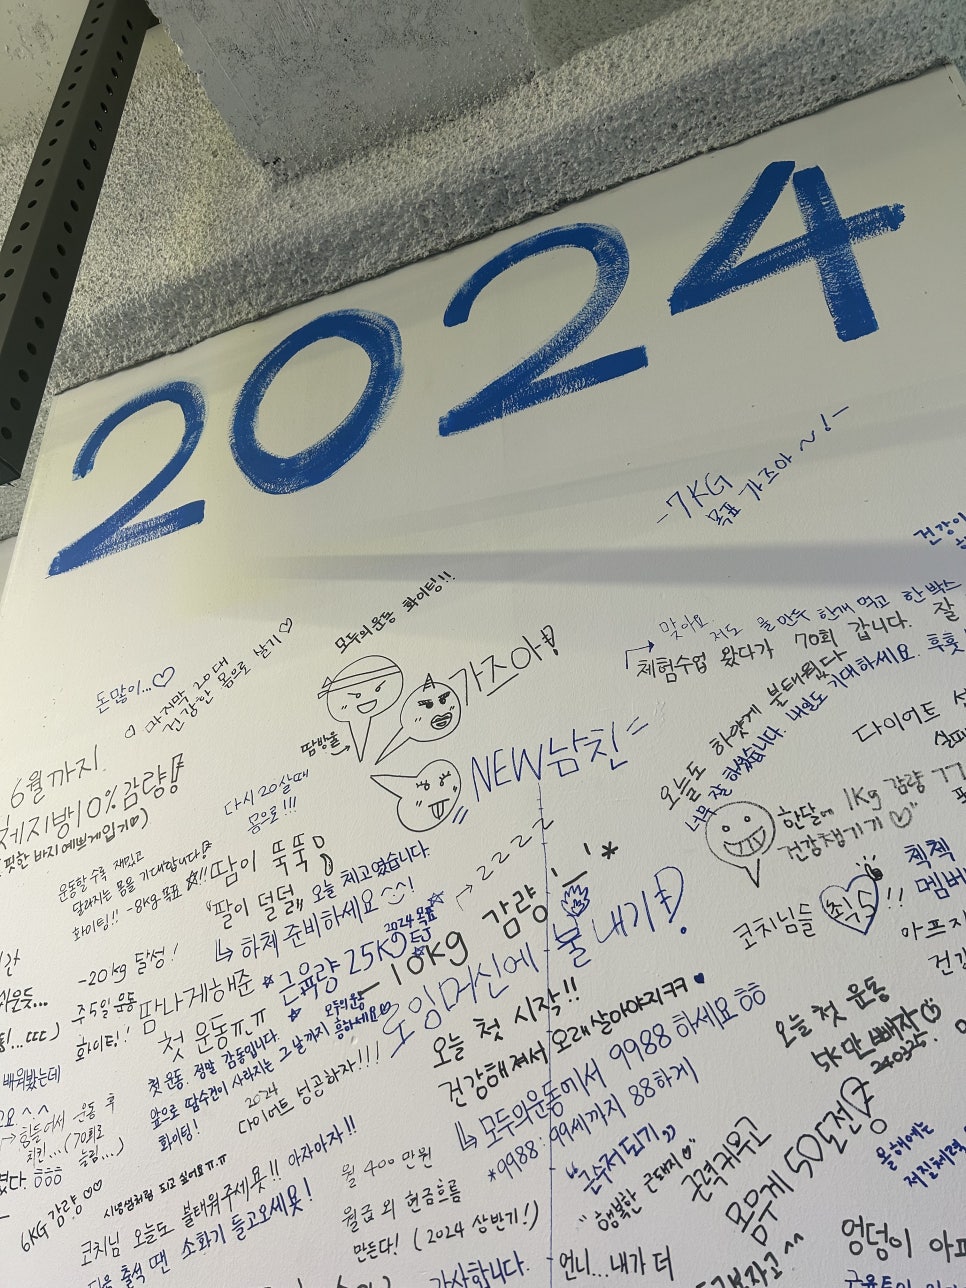 2024
-7KG
목표 가즈아~!-
모두의운동 화이팅!!
돈많이...♡
마지막 20대
건강한 몸으로 남기♡
가즈아!
땀방울
NEW남친=
맞아요
저도 물만두 한개 먹고 한박스
체험수업 왔다가 70회 갑니다. 잘
오늘도 하얗게 불태웠다
너무 잘 하셨습니다. 내일도 기대하세요. 후훗!
다이어트
6월까지
체지방10%감량!
핏한 바지 예쁘게입기♡)
다시 20살때
몸으로!!!
운동할수록 재밌고
달라지는 몸을 기대합니다!
화이팅!! -8kg 목표 ☆!!
땀이 뚝뚝
"팔이 덜덜" 오늘 최고였습니다.
↳ 하체 준비하세요^^!
2222
한달에 1kg 감량
건강챙기기♡"
코치님들 최고!!
체첵
-20kg 달성!
주5일 운동
화이팅!
땀나게해준
첫 운동ㅠ.ㅠ
2024 목표
근육량 25K
-10kg 감량!
로잉머신에 불내기!
첫 운동. 정말 감동입니다. 모두의운동
앞으로 땀수건이 사라지는 그날까지 흥하세요♡
화이팅!
오늘 첫 시작!!
건강해져서 오래살아야지ㅋㅋ♥
↳ 모두의운동에서 9988 하세요ㅎㅎ
*9988: 99세까지 88하게
오늘 첫 운동
5k만빼자
240325.
2024
다이어트 성공하자!!!
배워봤는데
→ 힘들어서 운동 후
치킨...(70회로
늘림...)
6KG 감량♡♡
코치님 오늘도 불태워주세욧!! 아자아자!!
다음 출석 땐 소화기 들고오세욧!
월 400만원
월급 외 현금흐름
만든다! (2024 상반기!)
"근수저되기"
"행복한 근돼지♡"
근력키우고
몸무게 50도전!
올해에는
감사합니다.
언니...내가 더
엉덩이